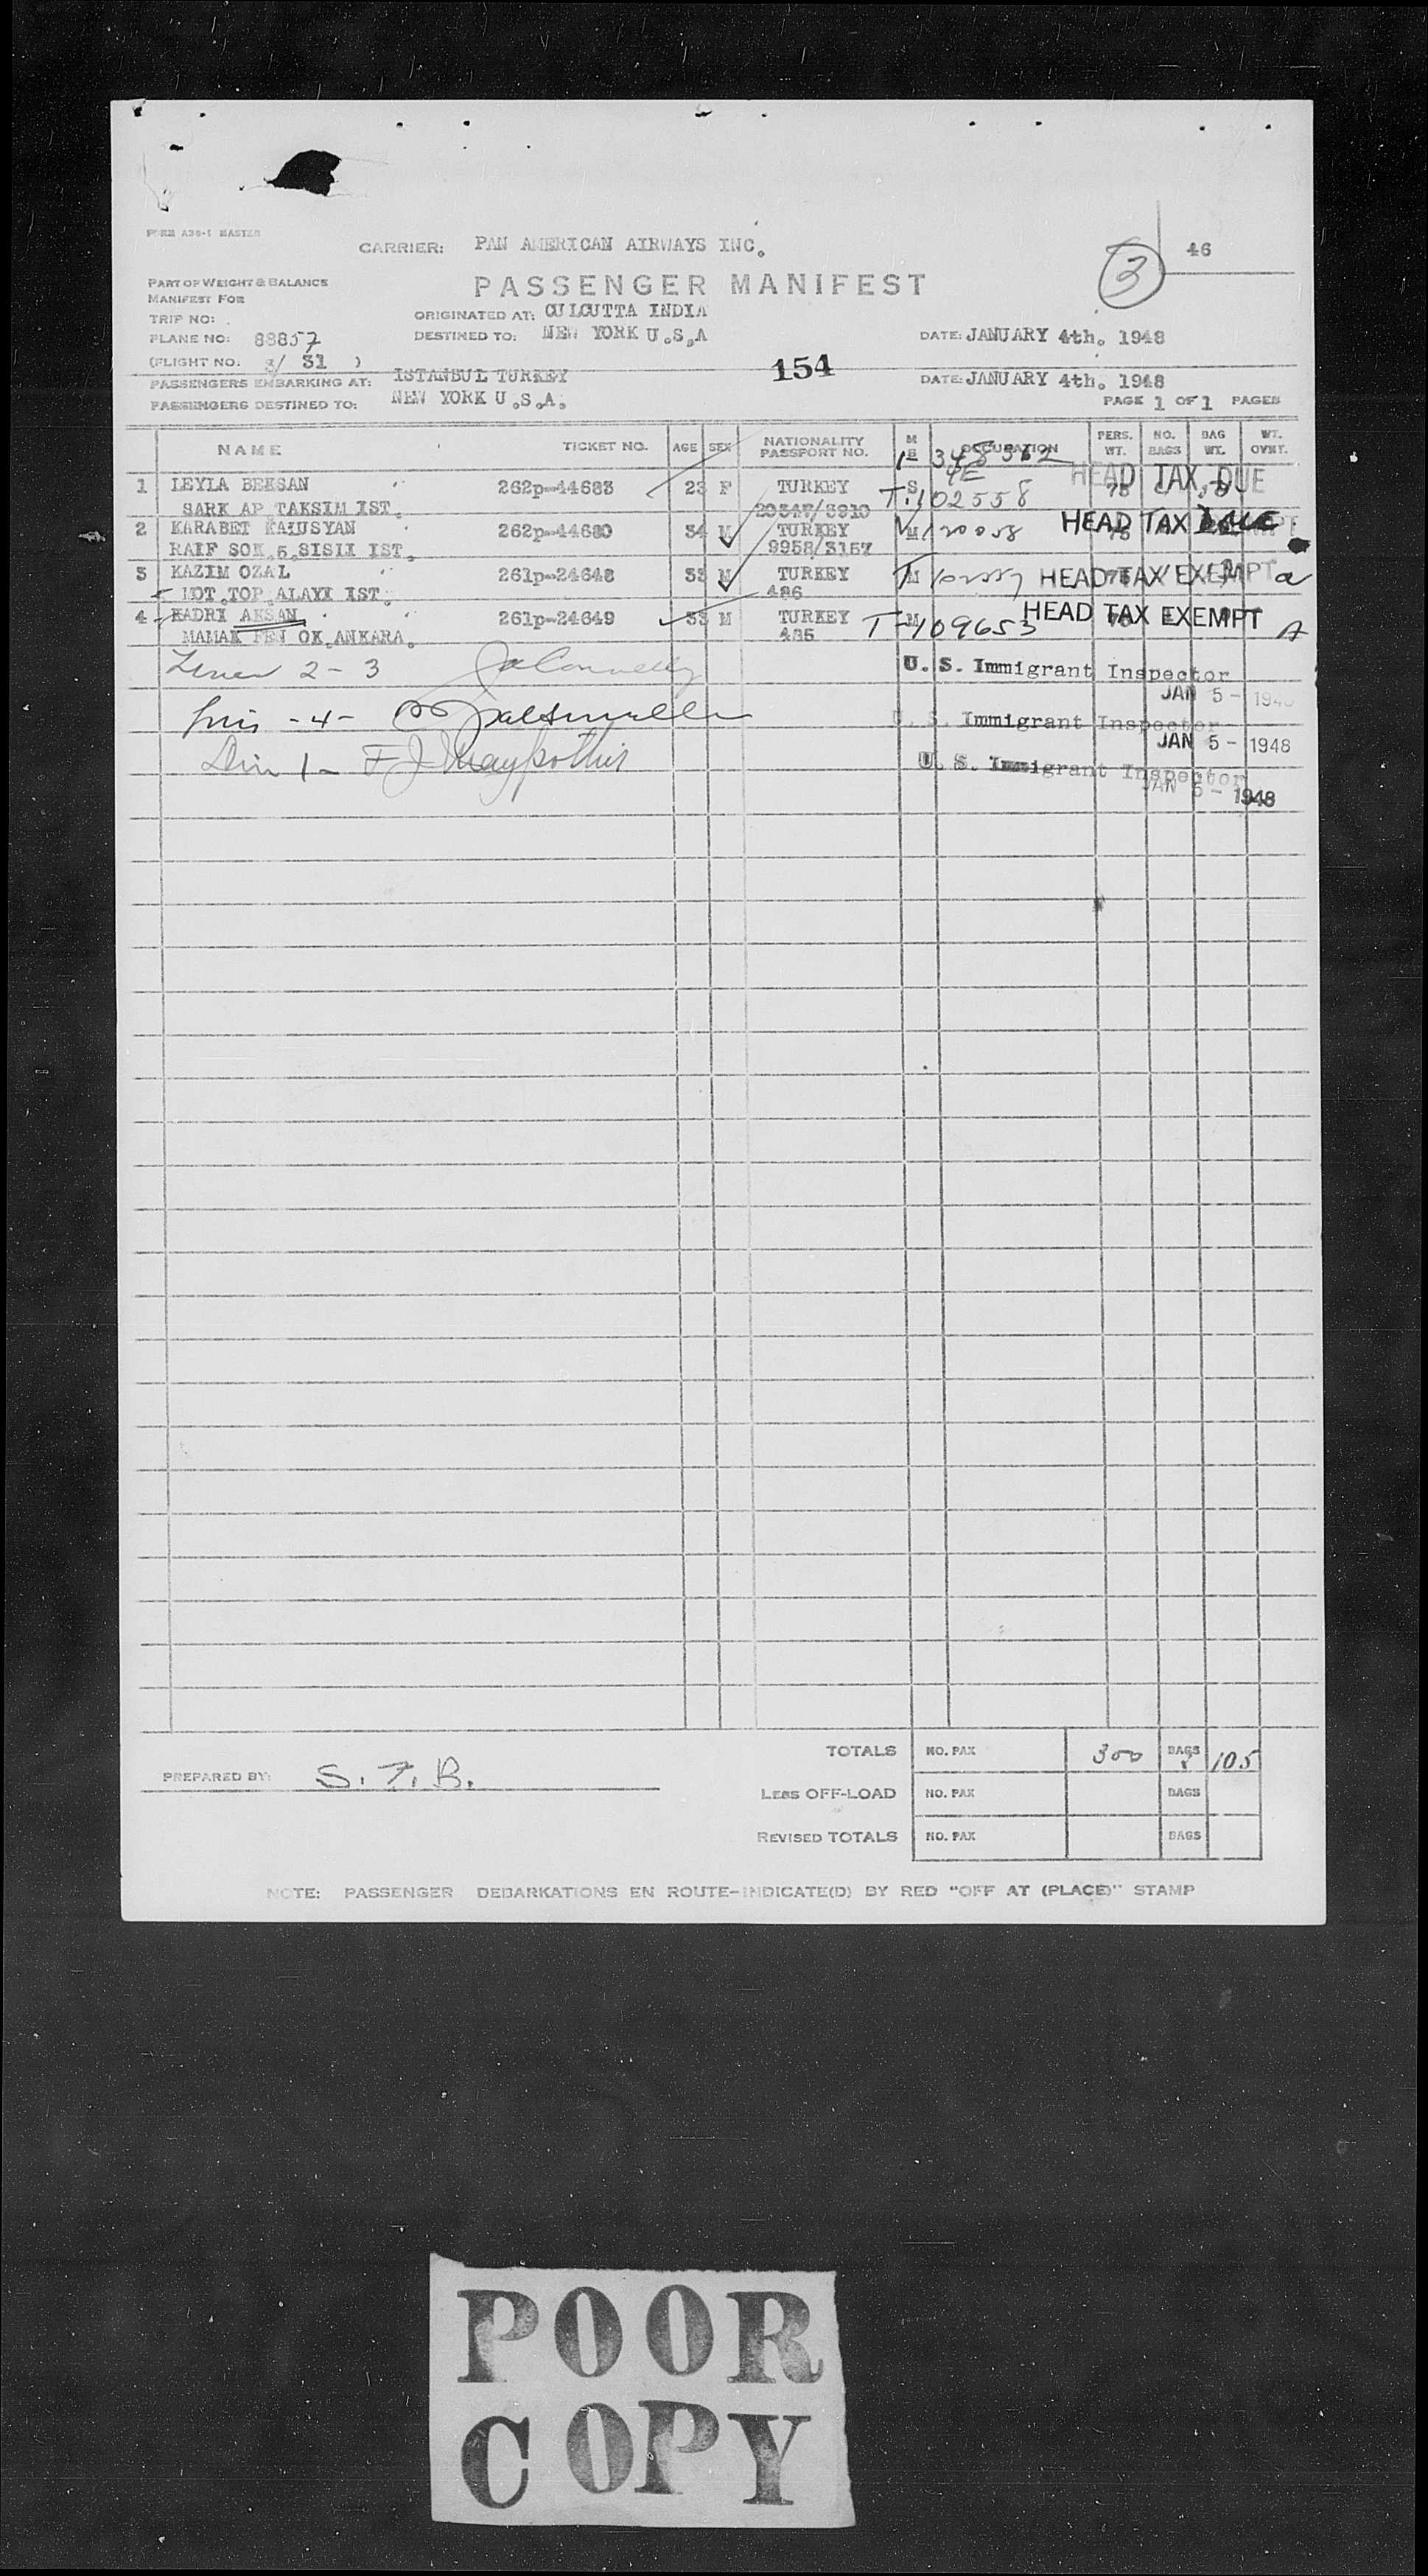 FORM A30-1 MASTER
CARRIER: PAN AMERICAN AIRWAYS INC.
3
46
PART OF WEIGHT & BALANCE
MANIFEST FOR
PASSENGER MANIFEST
TRIP NO:
ORIGINATED AT: CULCUTTA INDIA
PLANE NO: 88857
DESTINED TO: NEW YORK U.S.A
DATE: JANUARY 4th. 1948
(FLIGHT NO. 3/ 31 )
154
PASSENGERS EMBARKING AT: ISTANBUL TURKEY
DATE: JANUARY 4th. 1948
PASSENGERS DESTINED TO: NEW YORK U.S.A.
PAGE 1 OF 1 PAGES
NAME TICKET NO. AGE SEX NATIONALITY PASSPORT NO. M S OCCUPATION PERS. WT. NO. BAGS BAG WT. WT. OVNT.
1 LEYLA BEKSAN 262p-44683 23 F TURKEY S HEAD TAX DUE
SARK AP TAKSIM IST. T.102558
2 KARABET 262p-44680 34 M TURKEY M HEAD TAX DUE
RAIF SOK.5.SISLI IST. 9958/3157
3 KAZIM OZAL 261p-24648 33 M TURKEY M HEAD TAX EXEMPT a
TOP ALAYI IST. 486
4 KADRI AKSAN 261p-24649 33 M TURKEY M T-109653 HEAD TAX EXEMPT A
MAMAK FEN OK.ANKARA. 485
2-3
U. S. Immigrant Inspector
JAN 5 - 1948
-4-
U. S. Immigrant Inspector
JAN 5 - 1948
1-
U. S. Immigrant Inspector
JAN 5 - 1948
TOTALS NO. PAX 300 BAGS 105
PREPARED BY:
LESS OFF-LOAD NO. PAX BAGS
REVISED TOTALS NO. PAX BAGS
NOTE: PASSENGER DEBARKATIONS EN ROUTE-INDICATE(D) BY RED "OFF AT (PLACE)" STAMP
POOR
COPY